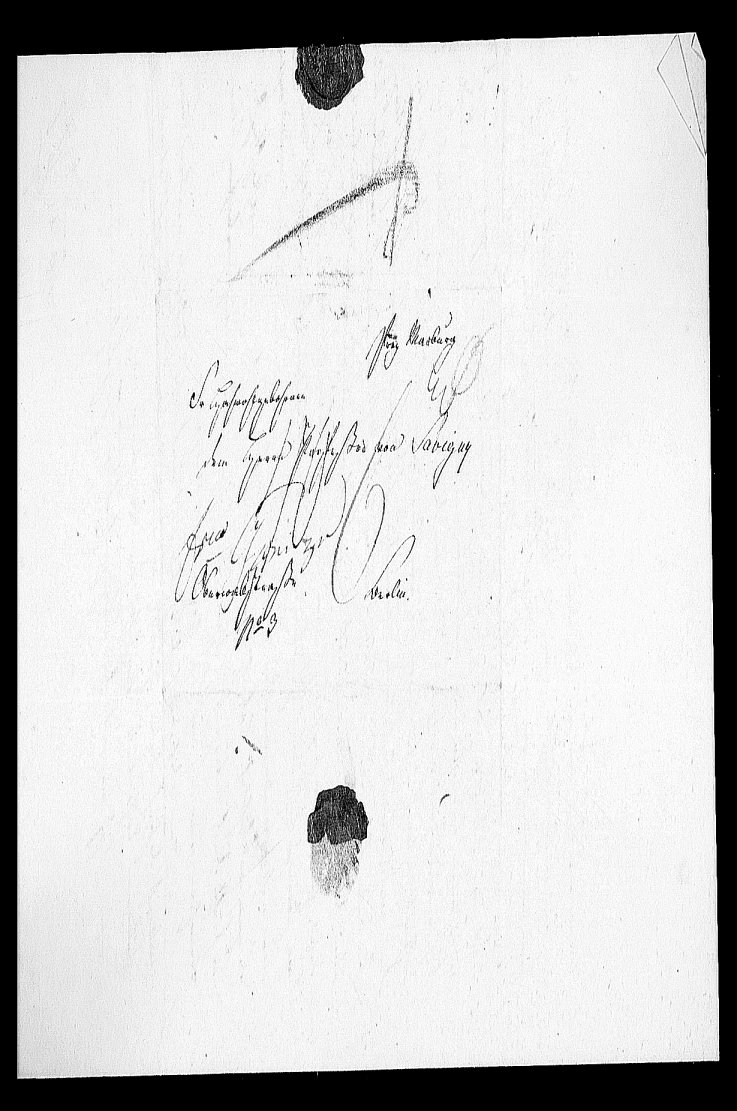 Frey Marburg
Sr Hochwohlgebohren
dem Herrn Professor von Savigny
frei
Oberwallstraße Berlin.
No 3